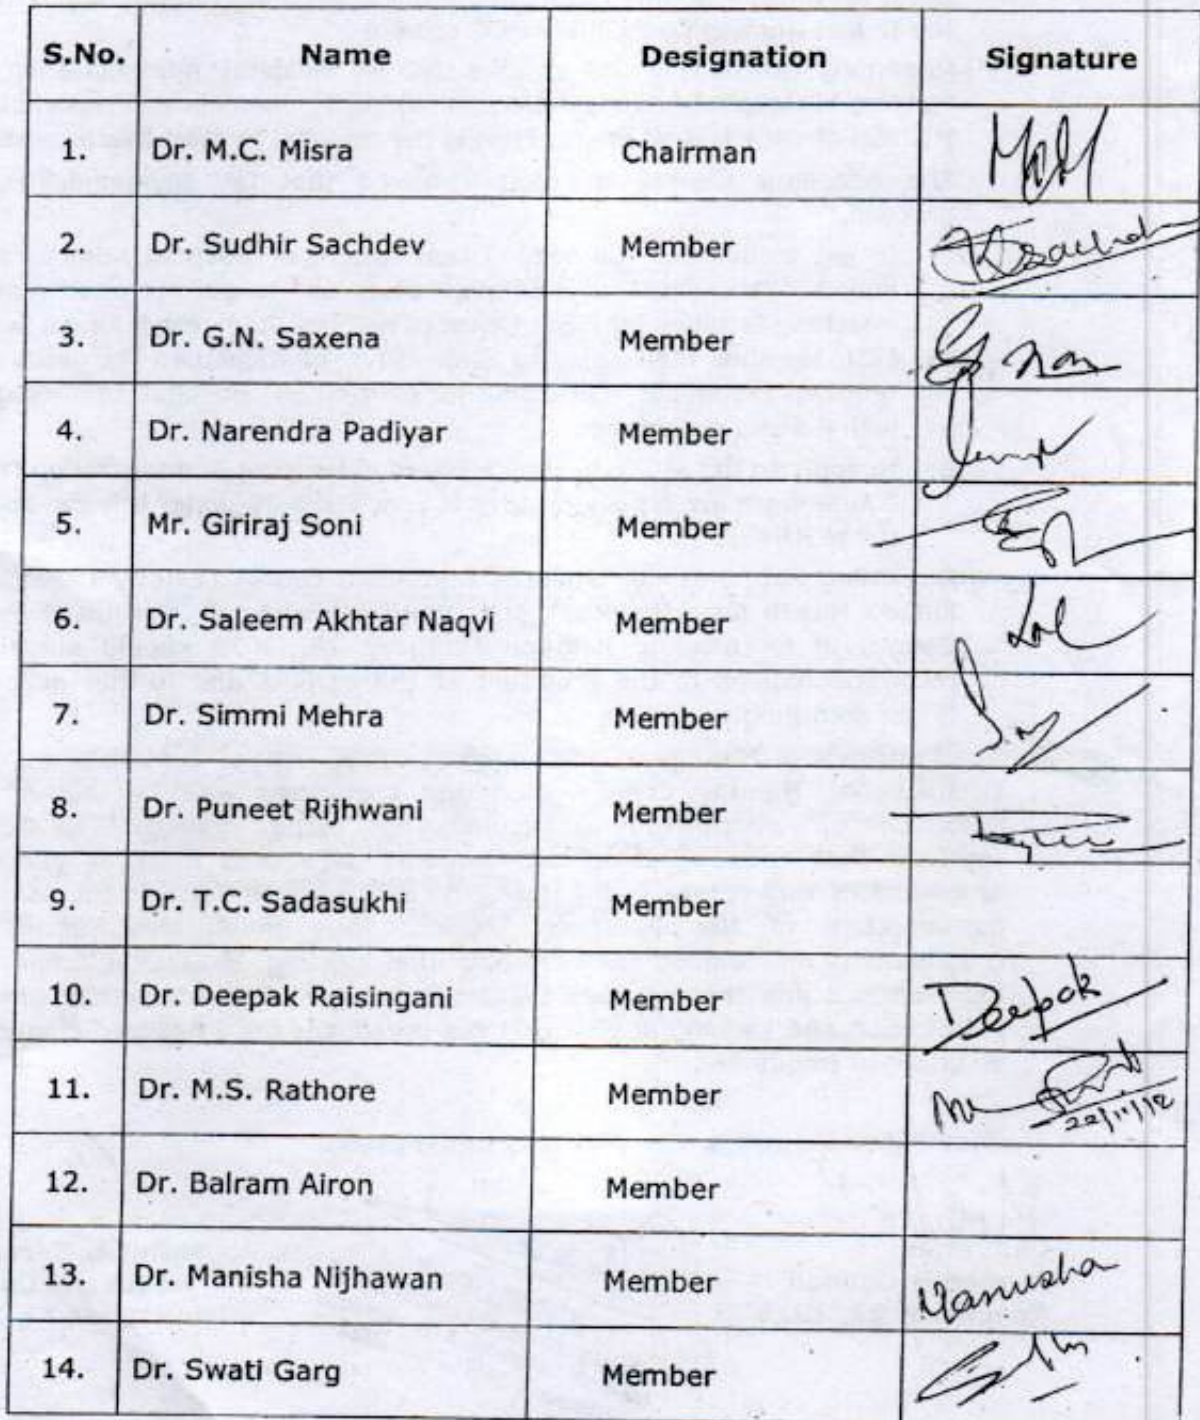 S.No. Name Designation Signature
1. Dr. M.C. Misra Chairman
2. Dr. Sudhir Sachdev Member
3. Dr. G.N. Saxena Member
4. Dr. Narendra Padiyar Member
5. Mr. Giriraj Soni Member
6. Dr. Saleem Akhtar Naqvi Member
7. Dr. Simmi Mehra Member
8. Dr. Puneet Rijhwani Member
9. Dr. T.C. Sadasukhi Member
10. Dr. Deepak Raisingani Member Deepak
11. Dr. M.S. Rathore Member 22/11/12
12. Dr. Balram Airon Member
13. Dr. Manisha Nijhawan Member Manisha
14. Dr. Swati Garg Member